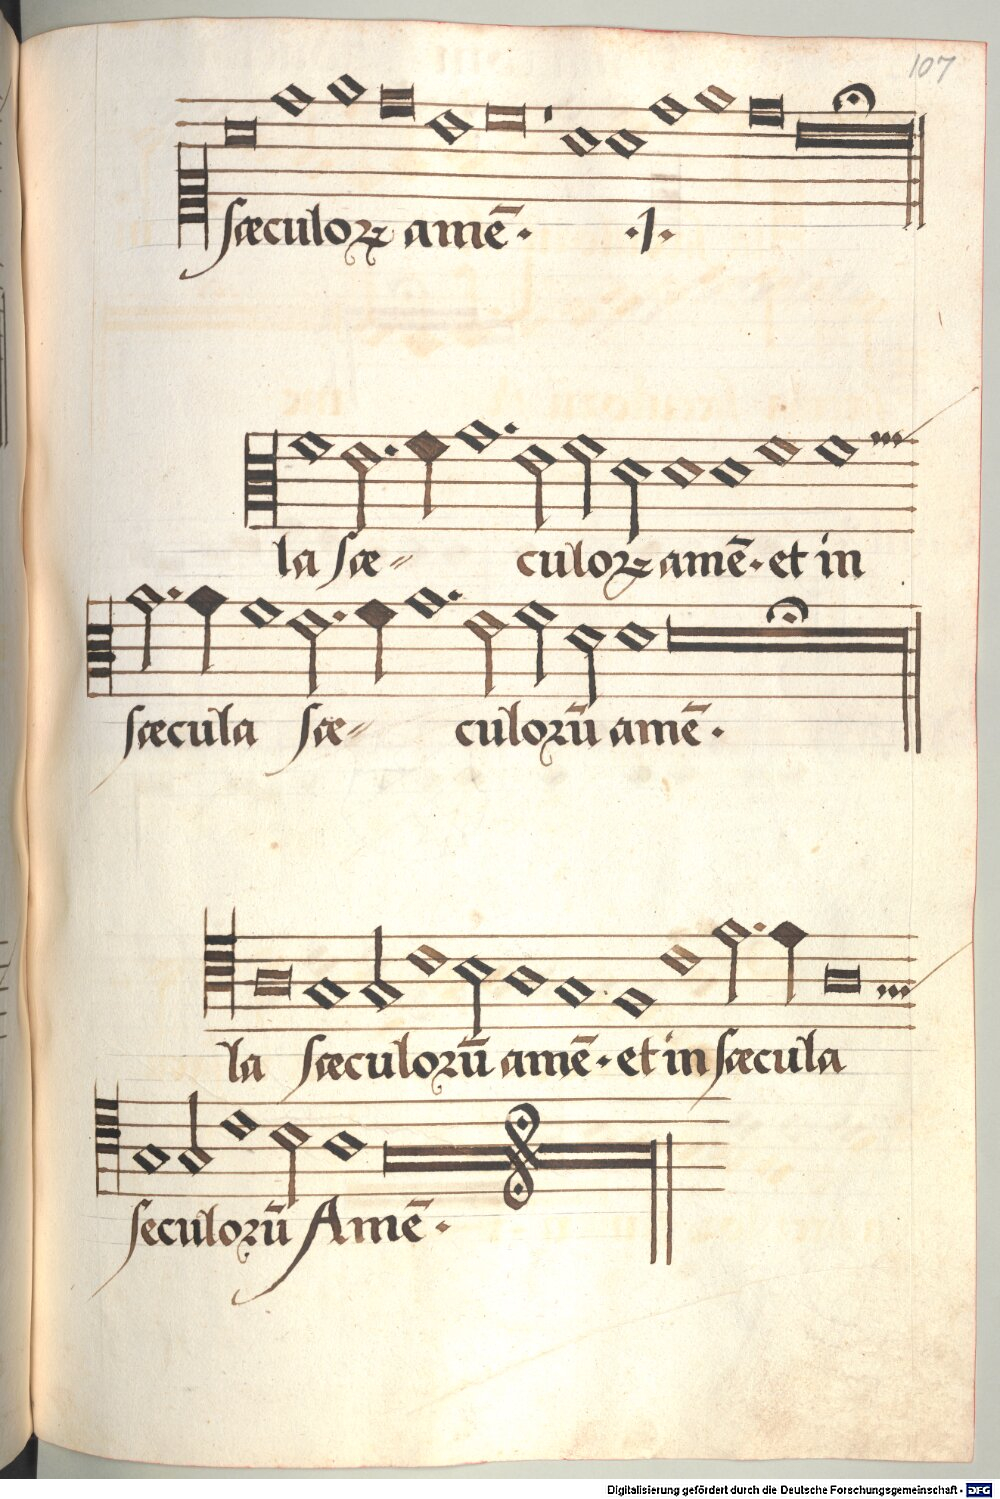 107
sæculoꝝ amē · ·I·
la sæ= culoꝝ amē · et in
sæcula sæ= culorū amē ·
la sæculorū amē · et in sæcula
seculorū Amē ·
Digitalisierung gefördert durch die Deutsche Forschungsgemeinschaft - DFG